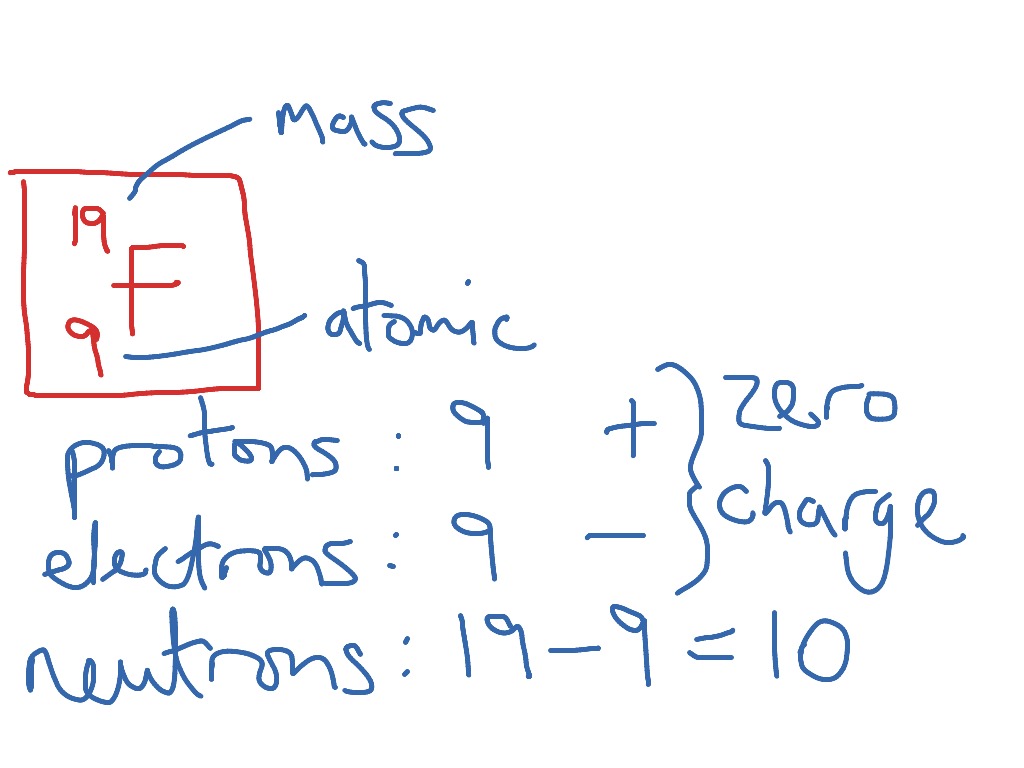 mass
19
F
9
atomic
protons : 9 +
electrons : 9 −
zero
charge
neutrons : 19 − 9 = 10